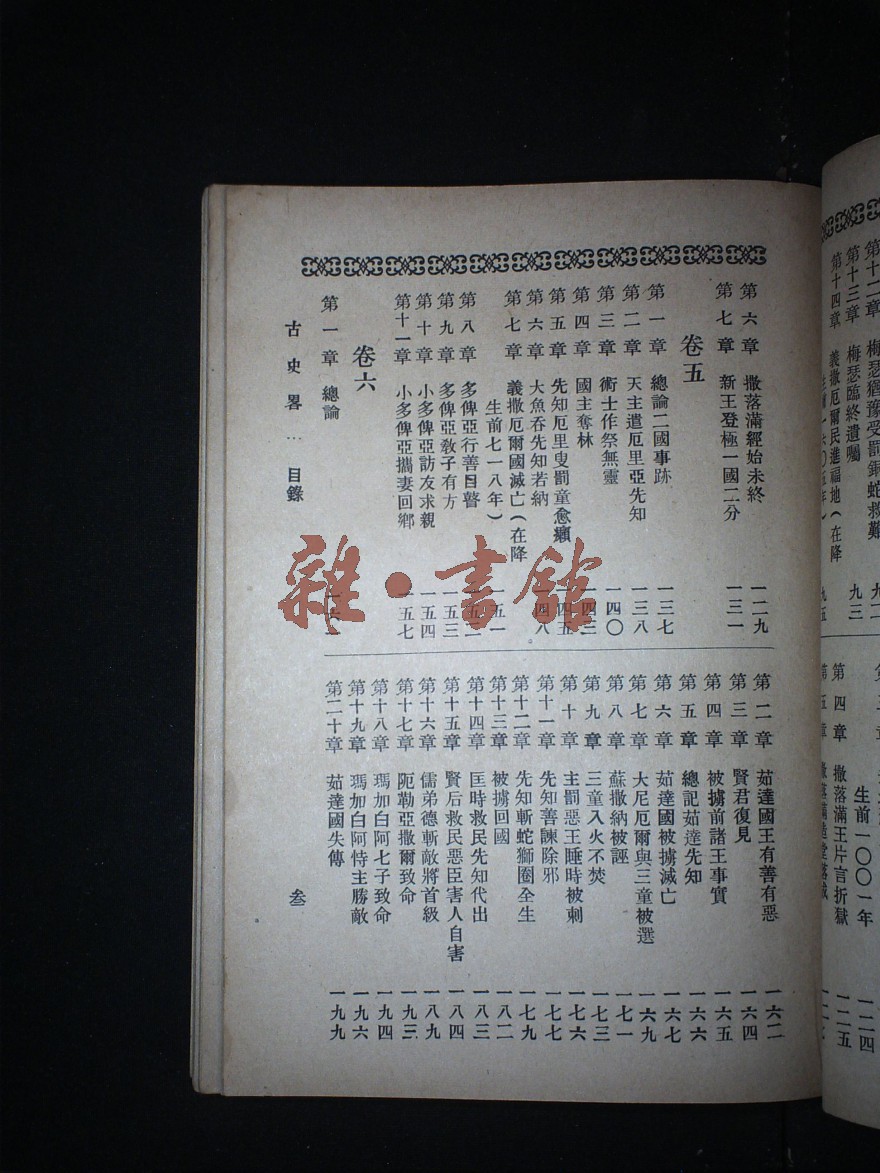 第十三章 梅瑟臨終遺囑 九三
第十四章 義撒厄爾民進福地(在降
第四章 撒落滿王片言折獄 一二五
生前一〇〇一年 一二四
第六章 撒落滿經始未終 一二九
第七章 新王登極一國二分 一三一
卷五
第一章 總論二國事跡 一三七
第二章 天主遣厄里亞先知 一三八
第三章 術士作祭無靈 一四〇
第四章 國主奪林 一四三
第五章 先知厄里叟罰童愈癩 一四五
第六章 大魚吞先知若納 一四八
第七章 義撒厄爾國滅亡(在降
生前七一八年) 一五一
第八章 多俾亞行善目瞽
第九章 多俾亞敎子有方 一五三
第十章 小多俾亞訪友求親 一五四
第十一章 小多俾亞攜妻回鄉 一五七
卷六
第一章 總論
第二章 茹達國王有善有惡 一六二
第三章 賢君復見 一六四
第四章 被擄前諸王事實 一六五
第五章 總記茹達先知 一六六
第六章 茹達國被擄滅亡 一六七
第七章 大尼厄爾與三童被選 一六九
第八章 蘇撒納被誣 一七一
第九章 三童入火不焚 一七三
第十章 主罰惡王睡時被刺 一七六
第十一章 先知善諫除邪 一七七
第十二章 先知斬蛇獅圈全生 一七九
第十三章 被擄回國 一八二
第十四章 匡時救民先知代出 一八三
第十五章 賢后救民惡臣害人自害 一八四
第十六章 儒弟德斬敵將首級 一八九
第十七章 阨勒亞撒爾致命 一九三
第十八章 瑪加白阿七子致命 一九四
第十九章 瑪加白阿恃主勝敵 一九六
第二十章 茹達國失傳 一九九
古史畧 目錄
叁
雜·書館